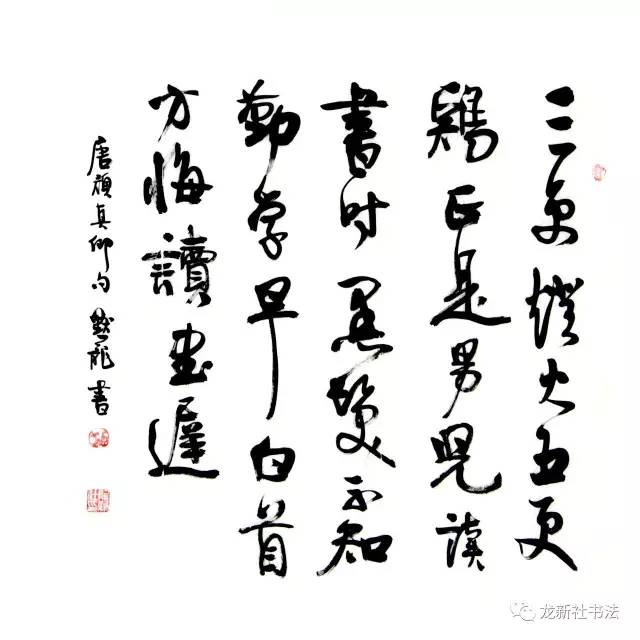 三更燈火五更
鷄正是男兒读
書时黑髮不知
勤学早白首
方悔讀書遲
唐顔真卿句 默龍書
龙新社书法